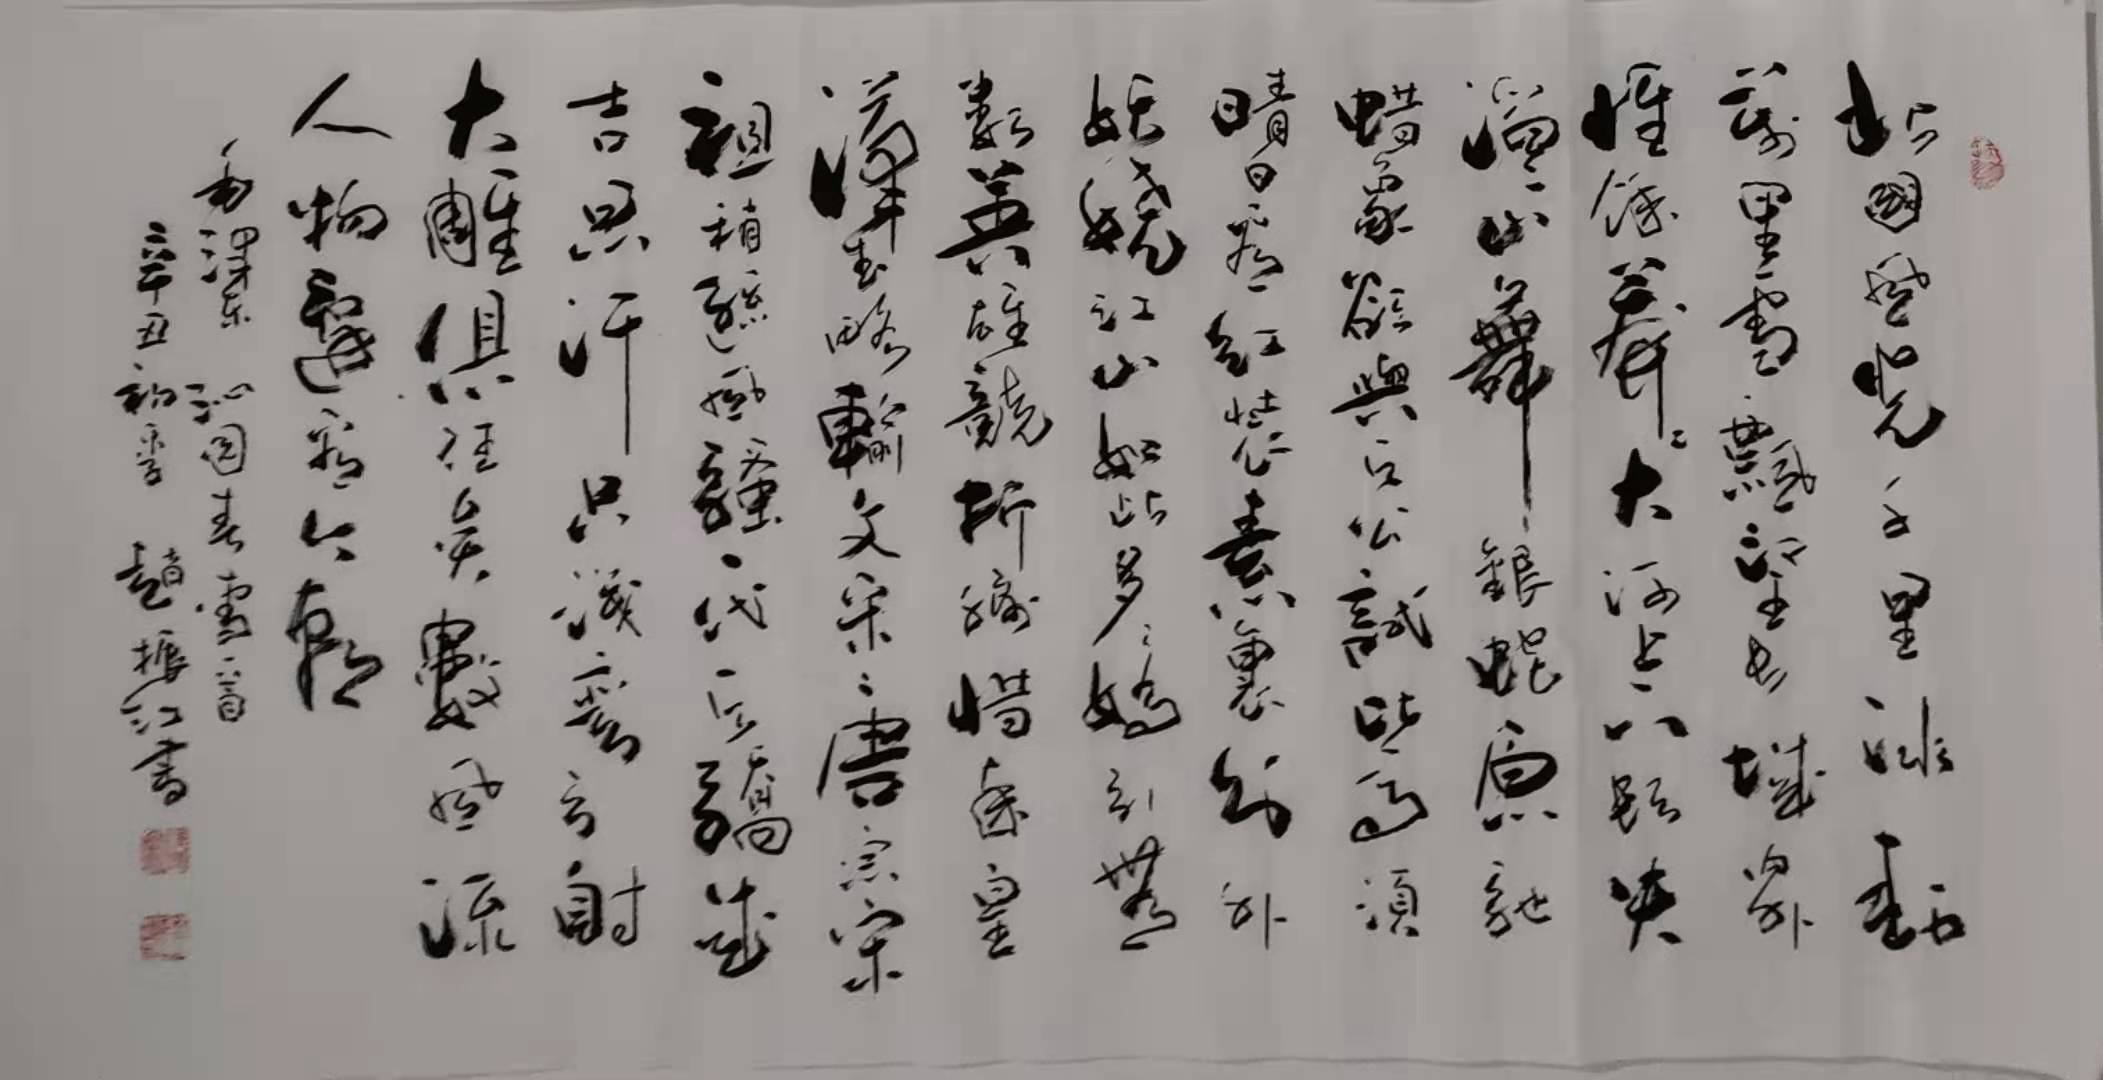 北國風光千里冰封
萬里雪飄望長城内外
惟餘莽莽大河上下頓失
滔滔山舞銀蛇原馳
蜡象欲與天公試比高須
晴日看紅裝素裹分外
妖嬈江山如此多嬌引無
數英雄競折腰惜秦皇
漢武略輸文采唐宗宋
祖稍遜風騷一代天驕成
吉思汗只識彎弓射
大雕俱往矣數風流
人物還看今朝
毛澤東 沁園春雪一首
辛丑初 趙振江書